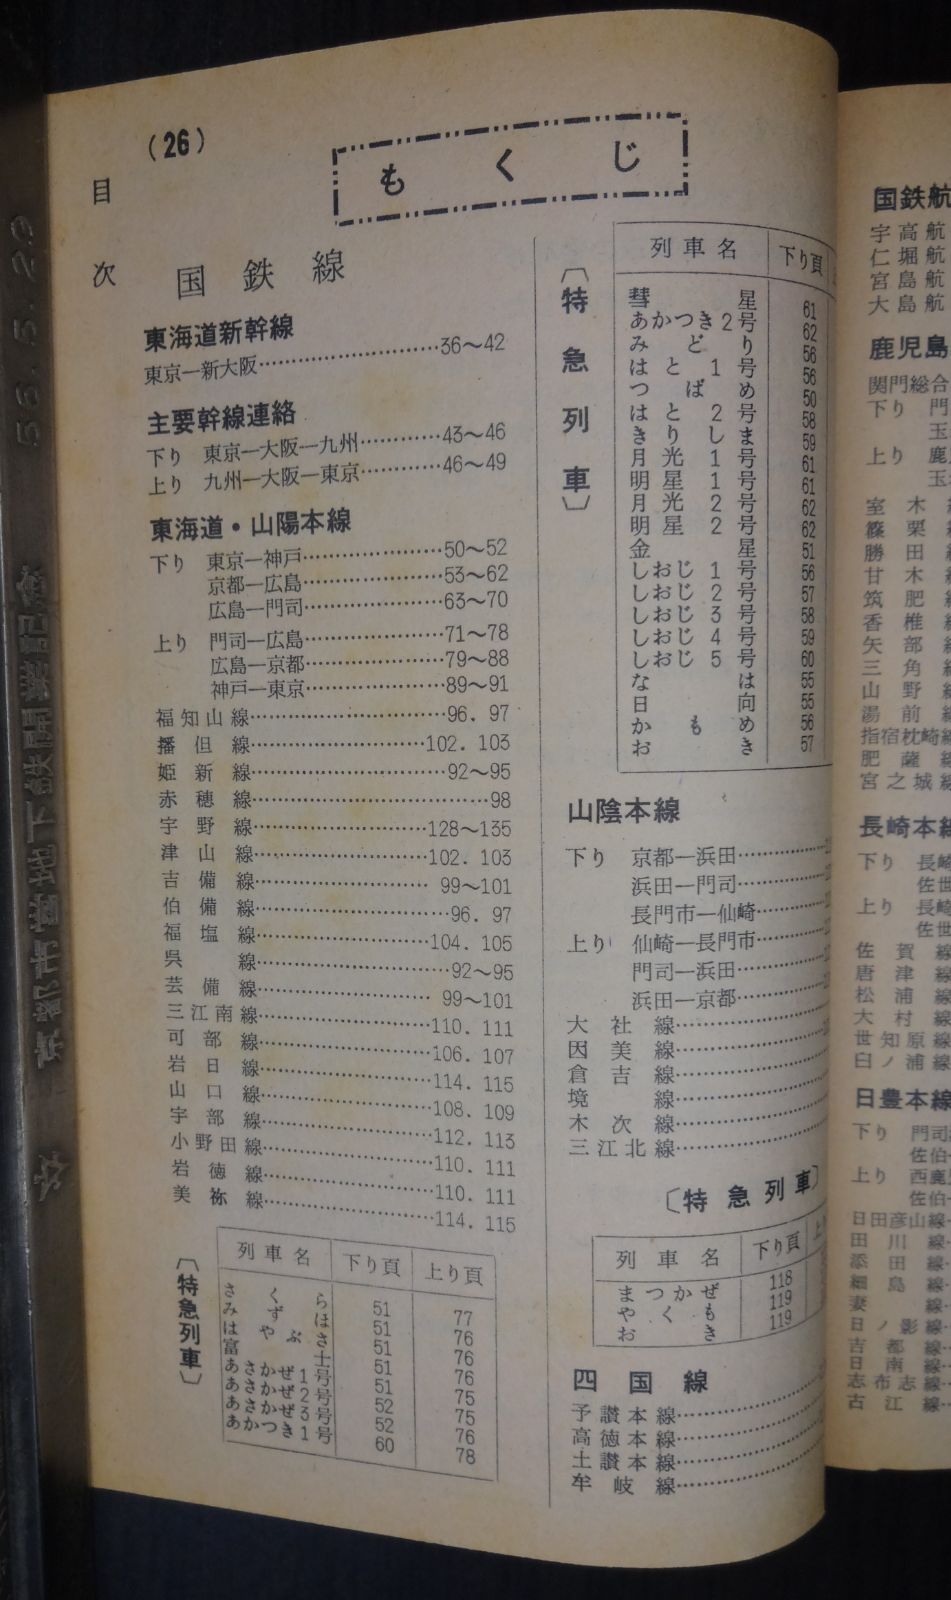 (26)
目次
もくじ
国鉄線
東海道新幹線
東京―新大阪……36～42
主要幹線連絡
下り 東京―大阪―九州……43～46
上り 九州―大阪―東京……46～49
東海道・山陽本線
下り 東京―神戸……50～52
京都―広島……53～62
広島―門司……63～70
上り 門司―広島……71～78
広島―京都……79～88
神戸―東京……89～91
福知山線……96．97
播但線……102．103
姫新線……92～95
赤穂線……98
宇野線……128～135
津山線……102．103
吉備線……99～101
伯備線……96．97
福塩線……104．105
呉線……92～95
芸備線……99～101
三江南線……110．111
可部線……106．107
岩日線……114．115
山口線……108．109
宇部線……112．113
小野田線……110．111
岩徳線……110．111
美祢線……114．115
〔特急列車〕
列車名 下り頁 上り頁
さくら 51 77
みずほ 51 76
はやぶさ 51 76
富士 51 76
あさかぜ1号 51 75
あさかぜ2号 52 75
あさかぜ3号 52 76
あかつき1号 60 78
〔特急列車〕
列車名 下り頁
彗星 61
あかつき2号 62
みどり 56
はと1号 56
つばめ 50
はと2号 58
きりしま 59
月光1号 61
明星1号 61
月光2号 62
明星2号 62
金星 51
しおじ1号 56
しおじ2号 57
しおじ3号 58
しおじ4号 59
しおじ5号 60
なは 55
日向 55
かもめ 56
おき 57
山陰本線
下り 京都―浜田……
浜田―門司……
長門市―仙崎……
上り 仙崎―長門市……
門司―浜田……
浜田―京都……
大社線……
因美線……
倉吉線……
境線……
木次線……
三江北線……
〔特急列車〕
列車名 下り頁 上
まつかぜ 118
やくも 119
おき 119
四国線
予讃本線……
高徳本線……
土讃本線……
牟岐線……
国鉄航
宇高航
仁堀航
宮島航
大島航
鹿児島
関門総合
下り 門
玉
上り 鹿
玉
室木
篠栗
勝田
甘木
筑肥
香椎
矢部
三角
山野
湯前
指宿枕崎線
肥薩
宮之城線
長崎本線
下り 長崎
佐世
上り 長崎
佐世
佐賀線
唐津線
松浦線
大村線
世知原線
臼ノ浦線
日豊本線
下り 門司
佐伯
上り 西鹿
佐伯
日田彦山線
田川線
添田線
細島線
妻線
日ノ影線
吉都線
日南線
志布志線
古江線
56.5.29